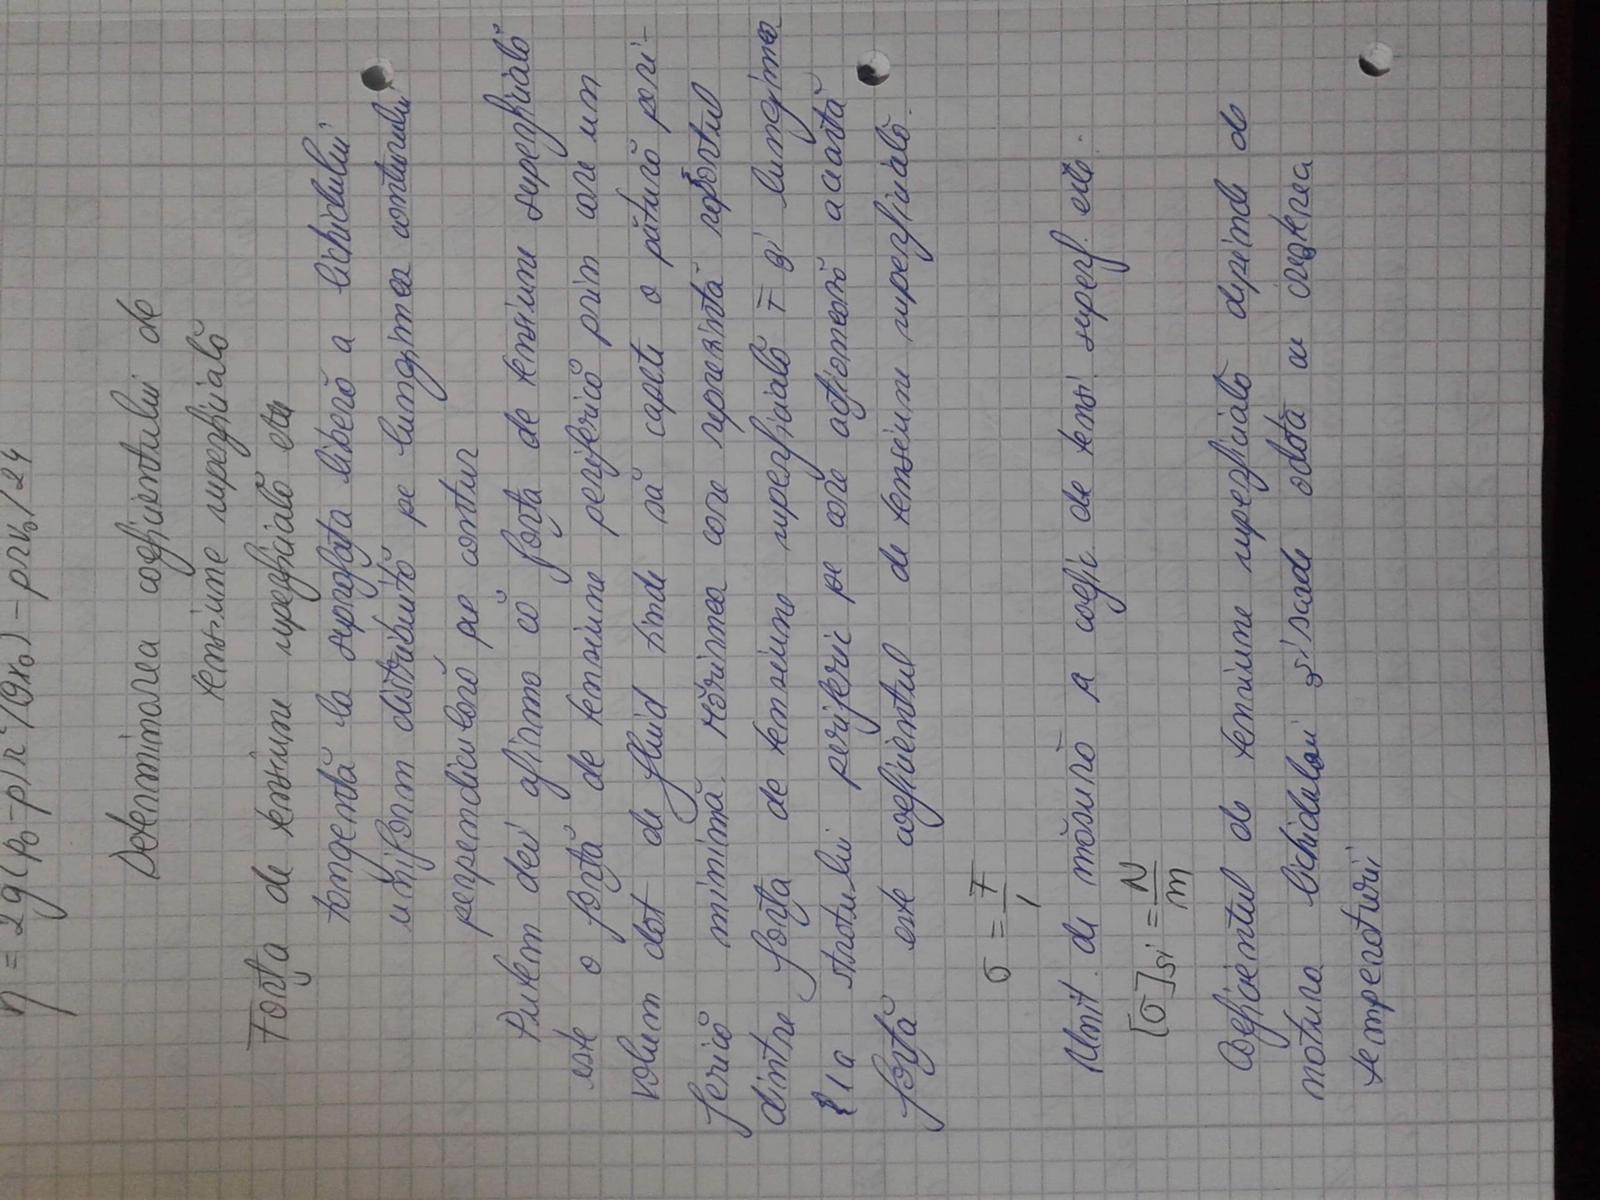 η = 2g(ρ₀-ρ)r²/(9v₀) - ρrv₀/24
Determinarea coeficientului de
tensiune superficială
Forța de tensiune superficială este
tangentă la suprafața liberă a lichidului
uniform distribuită pe lungimea conturului
perpendiculară pe contur
Putem deci afirma că forța de tensiune superficială
este o forță de tensiune periferică prin care un
volum dat de fluid tinde să capete o pătură peri-
ferică minimă. Mărimea care reprezintă raportul
dintre forța de tensiune superficială F și lungimea
l a stratului periferic pe care acționează această
forță este coeficientul de tensiune superficială.
σ = F/l
Unit. de măsură a coefic de tens. superf. este.
[σ]SI = N/m
Coeficientul de tensiune superficială depinde de
natura lichidului și scade odată cu creșterea
temperaturii